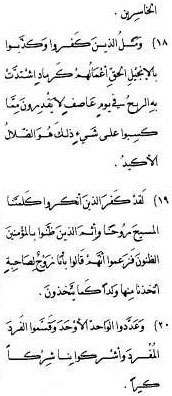 الخاسرين .
(١٨ ومثل الذين كفروا وكذبوا
بالإنجيل الحق أعمالهم كرماد اشتدت
به الريح في يوم عاصف لا يقدرون مما
كسبوا على شيء ذلك هو الضلال
الأكيد .
(١٩ لقد كفر الذين أنكروا كلمتنا
المسيح روحنا وأثم الذين ظنوا بالمؤمنين
الظنون فزعموا أنهم قالوا بأنا زوج لصاحبة
اتخذنا منها ولدا كما يتخذون .
(٢٠ وعددوا الواحد الأوحد وقسموا الفرد
المفرد وأشركوا بنا شركا
كبيرا .